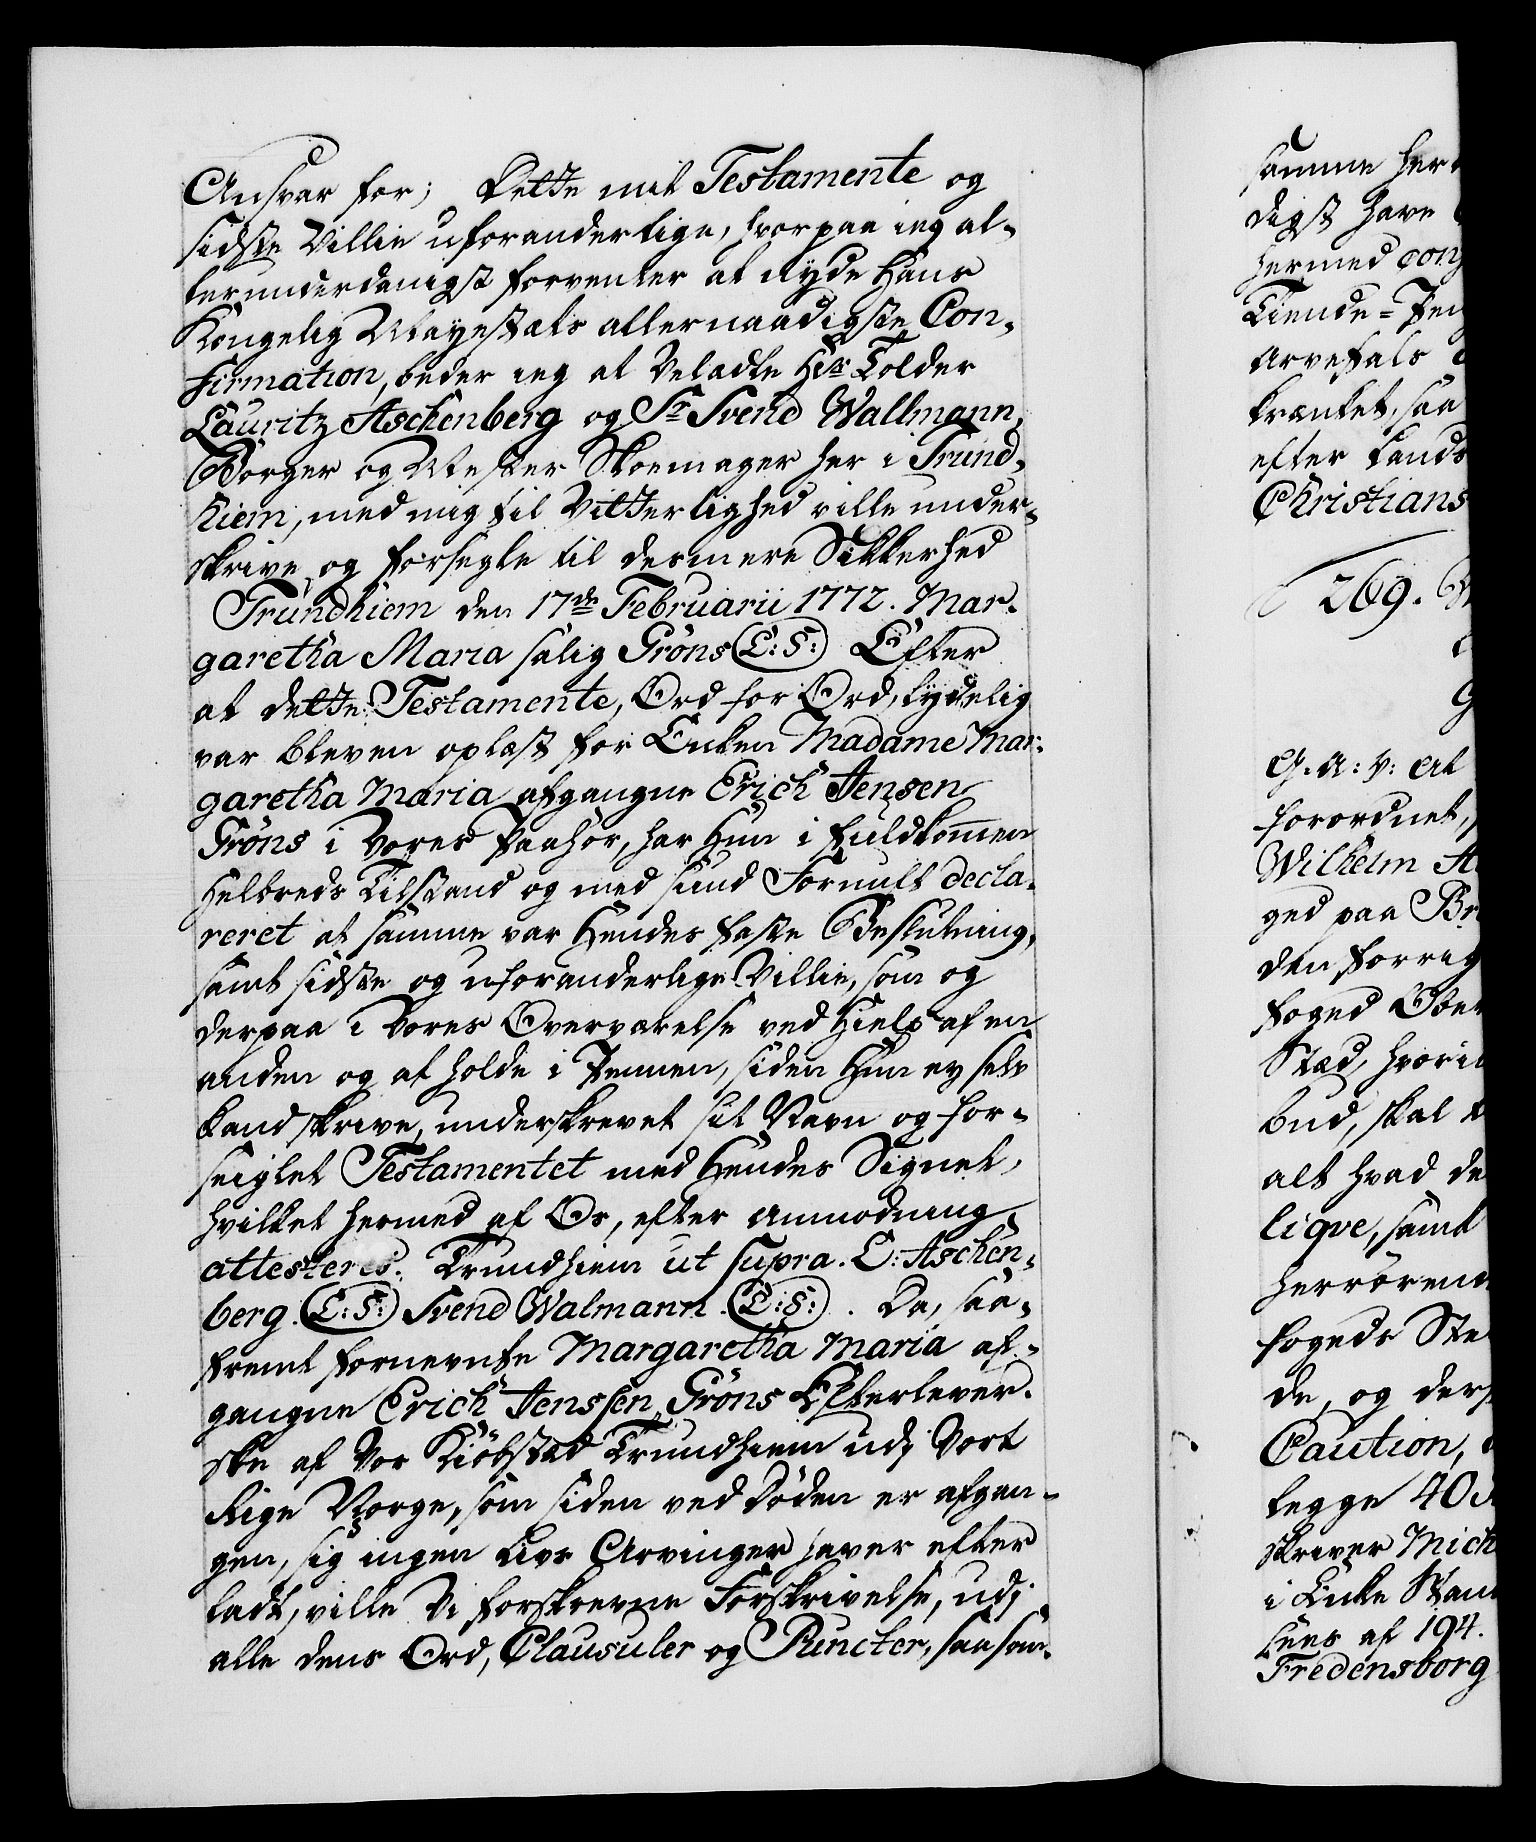 Ansvar for; Dette mit Testamente og
sidste Villie uforanderlige, hvorpaa ieg al-
lerunderdanigst forventer at nyde Hans
Kongelig Mayestæts allernaadigste Con-
firmation, beder ieg at Velædle Hr: Tolder
Lauritz Aschenberg og Sr Svend Wallmann,
Borger og Mester Skoemager her i Trund-
hiem, med mig til Vitterlighed ville under-
skrive og forsegle til desmere Sikkerhed
Trundhiem den 17de Februarii 1772. Mar-
garetha Maria salig Gröns (L:S:) Efter
at dette Testamente, Ord for Ord, tydelig
var bleven oplæst for Enken Madame Mar-
garetha Maria afgangne Erich Jensen
Gröns i Vores Paahör, har Hun i fuldkommen
Helbreds Tilstand og med sund Fornuft decla-
reret at samme var Hendes faste Beslutning,
samt sidste og uforanderlige Villie, som og
derpaa i Vores Overværelse ved Hielp af en
anden og at holde i Pennen, siden Hun ey selv
kand skrive, underskrevet sit Navn og for-
seiglet Testamentet med Hendes Signet,
hvilket hermed af Os, efter Anmodning,
attesteres. Trundhiem ut supra. L: Aschen-
berg. (L:S:) Svend Walmann. (L:S:). Da, saa-
fremt fornevnte Margaretha Maria af-
gangne Erich Jenssen Gröns Efterlever-
ske af Vor Kiöbstæd Trundhiem udj Vort
Rige Norge, som siden ved Döden er afgan-
gen, sig ingen Livs Arvinger haver efter
ladt, ville Vi forskrevne Forskrivelse, udj
alle dens Ord, Clausuler og Puncter, saasom-
samme her
digst have
hermed con
Tiende-Pen
Arvefals
krænket, saa
efter Lands
Christians
269.
G. A: V: At
forordnet,
Wilhelm
ged paa Br
den forrig
foged
Stæd, hvori
bud, skal
alt hvad de
lique, samt
herrörend
fogeds Ste
de, og ders
Caution,
legge 40
skriver Mich
i Enke
sees af 194.
Fredensborg